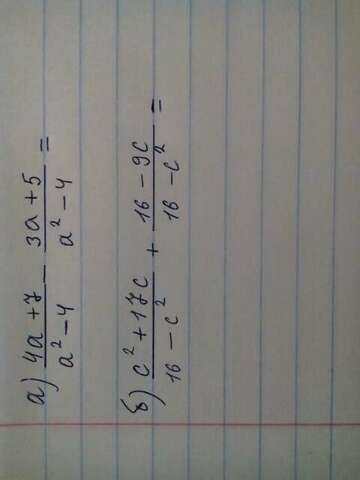 а) (4a+7)/(a²-4) - (3a+5)/(a²-4) =
б) (c²+17c)/(16-c²) + (16-9c)/(16-c²) =